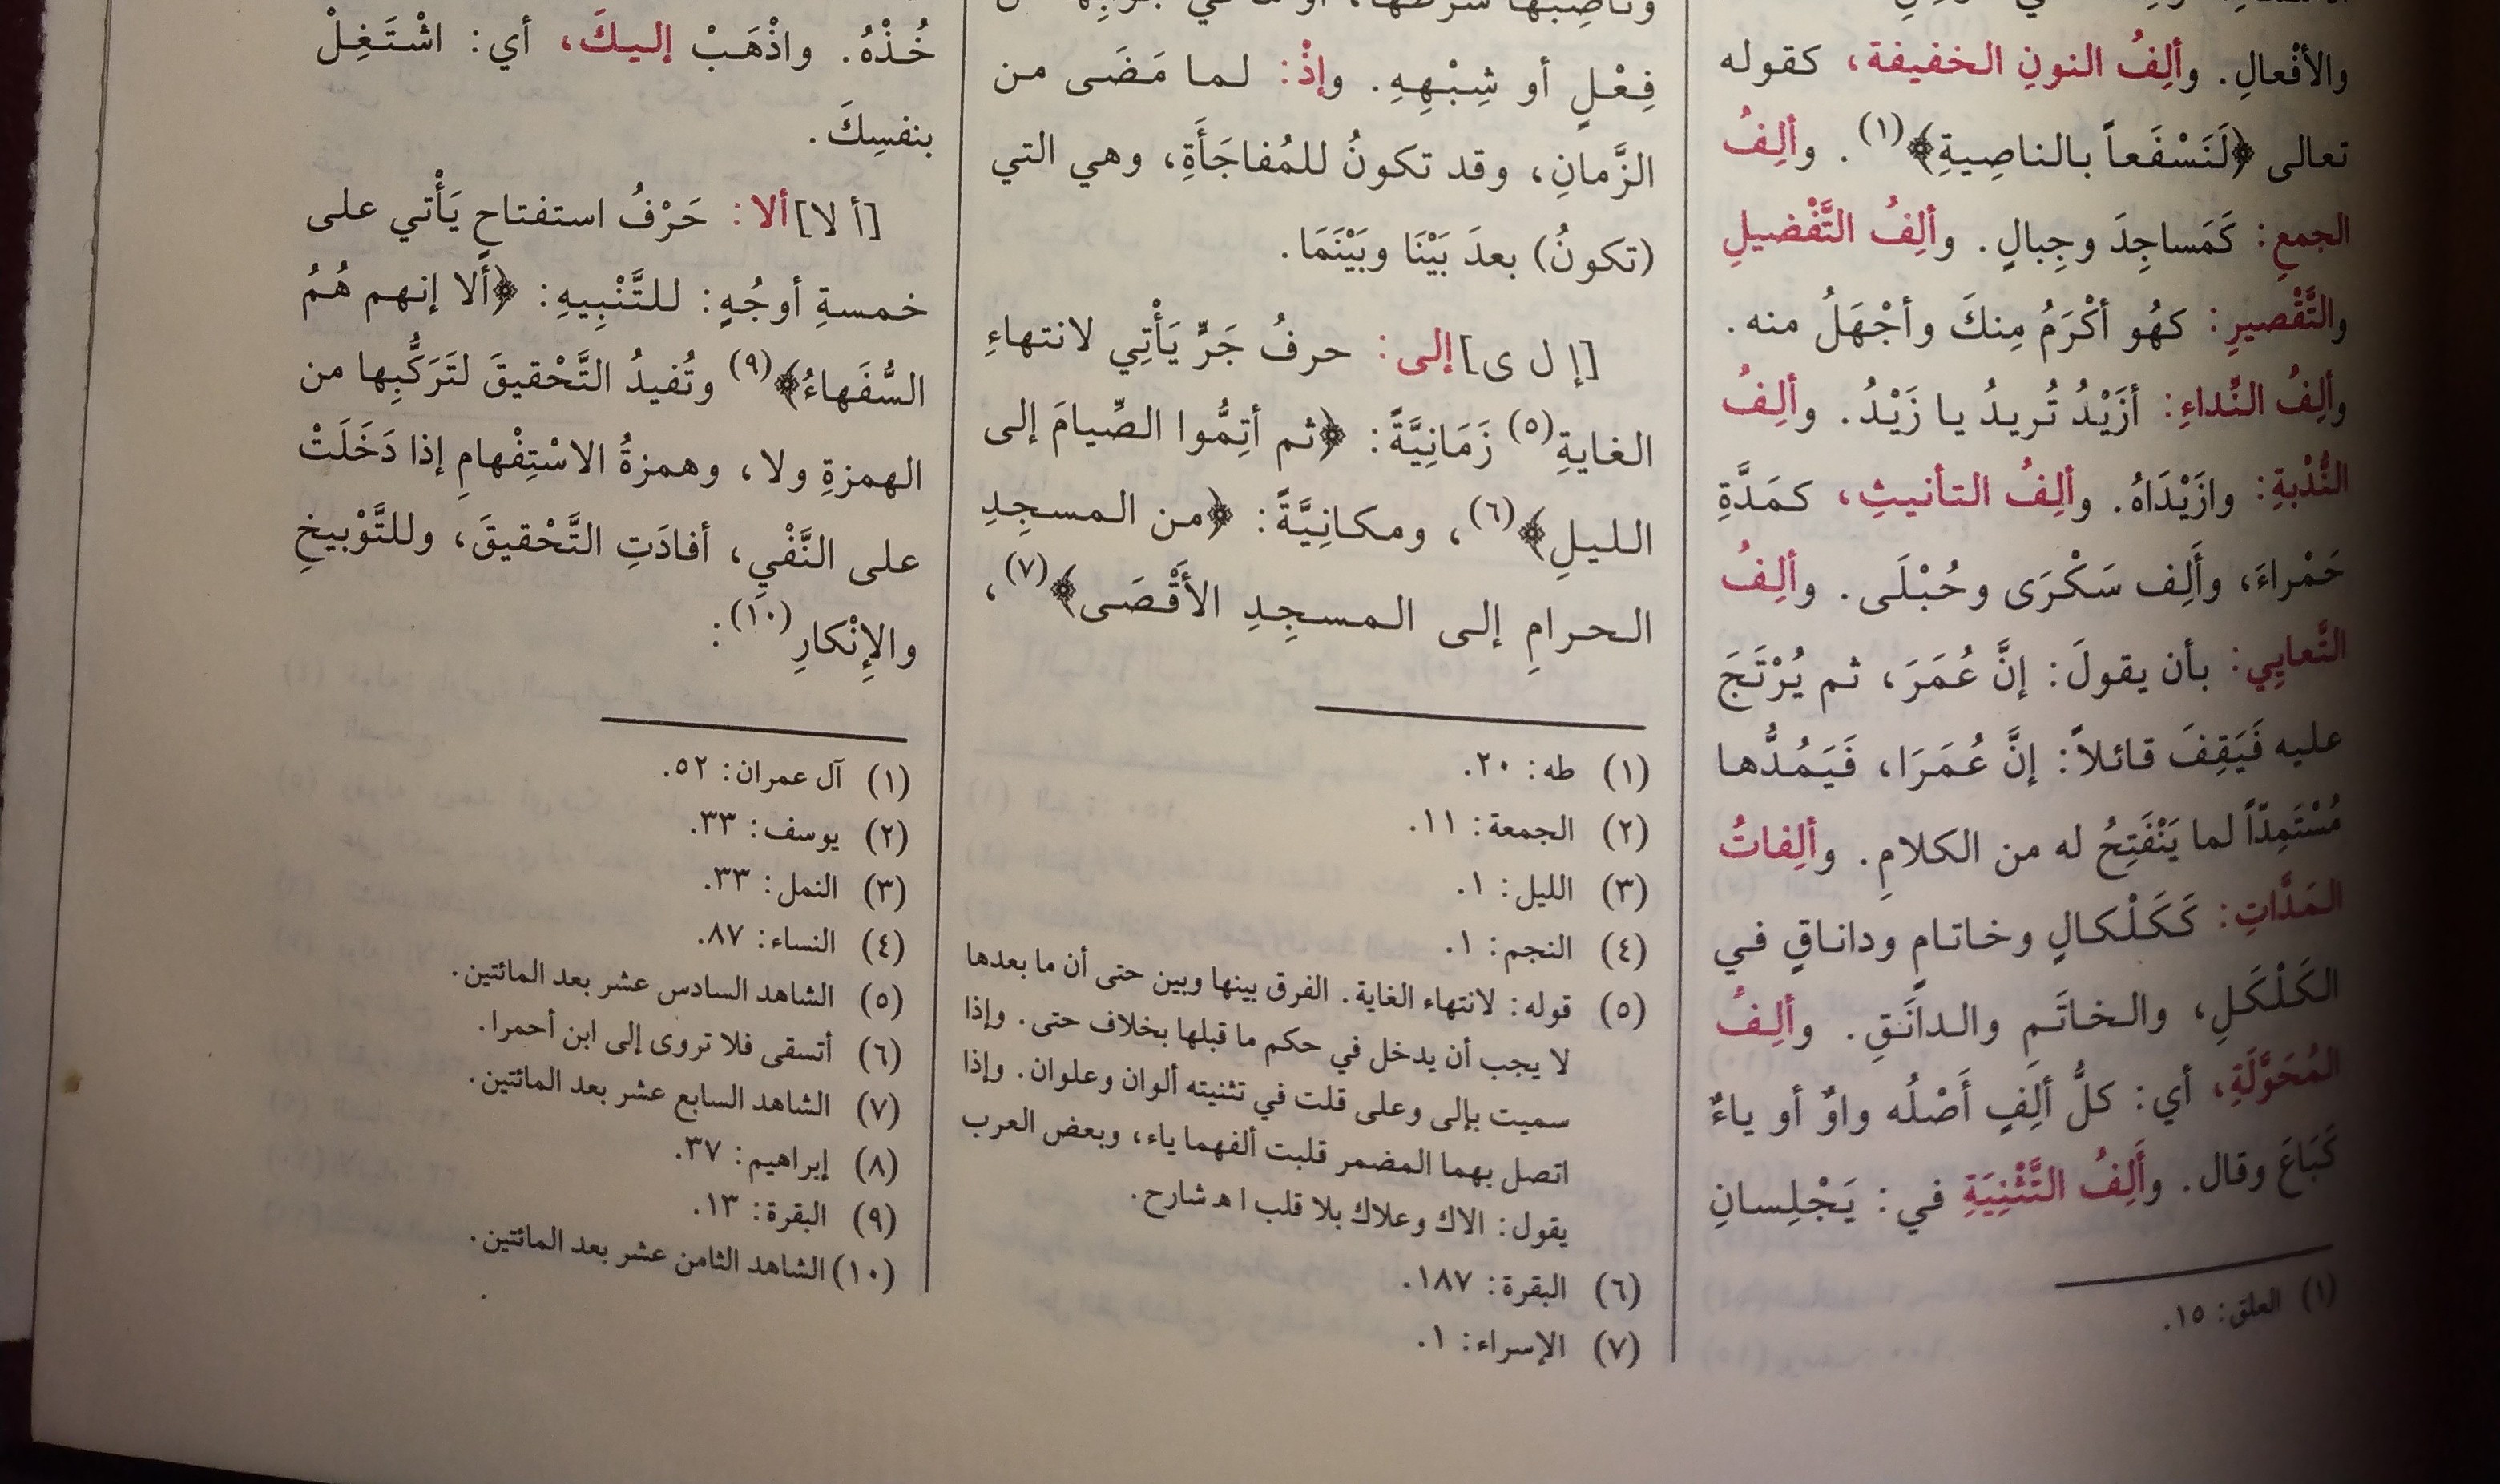 والأفْعالِ. وألِفُ النونِ الخفيفة، كقوله
تعالى ﴿لَنَسْفَعاً بالناصِيةِ﴾(١). وألِفُ
الجمعِ: كَمَساجِدَ وجِبالٍ. وألِفُ التَّفْضيلِ
والتَّقْصيرِ: كهُو أكْرَمُ مِنكَ وأجْهَلُ منه.
وألِفُ النِّداءِ: أزَيْدُ تُريدُ يا زَيْدُ. وألِفُ
النُّدْبةِ: وازَيْدَاهُ. وألِفُ التأنيثِ، كمَدَّةِ
حَمْراءَ، وأَلِف سَكْرَى وحُبْلَى. وألِفُ
التَّعايِي: بأن يقولَ: إنَّ عُمَرَ، ثم يُرْتَجَ
عليه فَيَقِفَ قائلاً: إنَّ عُمَرَا، فَيَمُدُّها
مُسْتَمِدّاً لما يَنْفَتِحُ له من الكلامِ. وألِفاتُ
المَدَّاتِ: كَكَلْكالٍ وخاتامٍ وداناقٍ في
الكَلْكَلِ، والخاتَمِ والدانَقِ. وألِفُ
المُحَوَّلَةِ، أي: كلُّ ألِفٍ أَصْلُه واوٌ أو ياءٌ
كَبَاعَ وقال. وأَلِفُ التَّثْنِيَةِ في: يَجْلِسانِ
(١) العلق: ١٥.
فِعْلٍ أو شِبْهِهِ. وإذْ: لما مَضَى من
الزَّمانِ، وقد تكونُ للمُفاجَأَةِ، وهي التي
(تكونُ) بعدَ بَيْنَا وبَيْنَمَا.
[إ ل ى]إلى: حرفُ جَرٍّ يَأْتِي لانتهاءِ
الغايةِ(٥) زَمَانِيَّةً: ﴿ثم أتِمُّوا الصِّيامَ إلى
الليلِ﴾(٦)، ومكانِيَّةً: ﴿من المسجِدِ
الحرامِ إلى المسجِدِ الأَقْصَى﴾(٧)،
(١) طه: ٢٠.
(٢) الجمعة: ١١.
(٣) الليل: ١.
(٤) النجم: ١.
(٥) قوله: لانتهاء الغاية. الفرق بينها وبين حتى أن ما بعدها
لا يجب أن يدخل في حكم ما قبلها بخلاف حتى. وإذا
سميت بإلى وعلى قلت في تثنيته ألوان وعلوان. وإذا
اتصل بهما المضمر قلبت ألفهما ياء، وبعض العرب
يقول: الاك وعلاك بلا قلب اهـ شارح.
(٦) البقرة: ١٨٧.
(٧) الإسراء: ١.
خُذْهُ. واذْهَبْ إليكَ، أي: اشْتَغِلْ
بنفسِكَ.
[أ لا]ألا: حَرْفُ استفتاحٍ يَأْتي على
خمسةِ أوجُهٍ: للتَّنْبِيهِ: ﴿ألا إنهم هُمُ
السُّفَهاءُ﴾(٩) وتُفيدُ التَّحْقيقَ لتَرَكُّبِها من
الهمزةِ ولا، وهمزةُ الاسْتِفْهامِ إذا دَخَلَتْ
على النَّفْيِ، أفادَتِ التَّحْقيقَ، وللتَّوْبيخِ
والإِنْكارِ(١٠):
(١) آل عمران: ٥٢.
(٢) يوسف: ٣٣.
(٣) النمل: ٣٣.
(٤) النساء: ٨٧.
(٥) الشاهد السادس عشر بعد المائتين.
(٦) أتسقى فلا تروى إلى ابن أحمرا.
(٧) الشاهد السابع عشر بعد المائتين.
(٨) إبراهيم: ٣٧.
(٩) البقرة: ١٣.
(١٠) الشاهد الثامن عشر بعد المائتين.